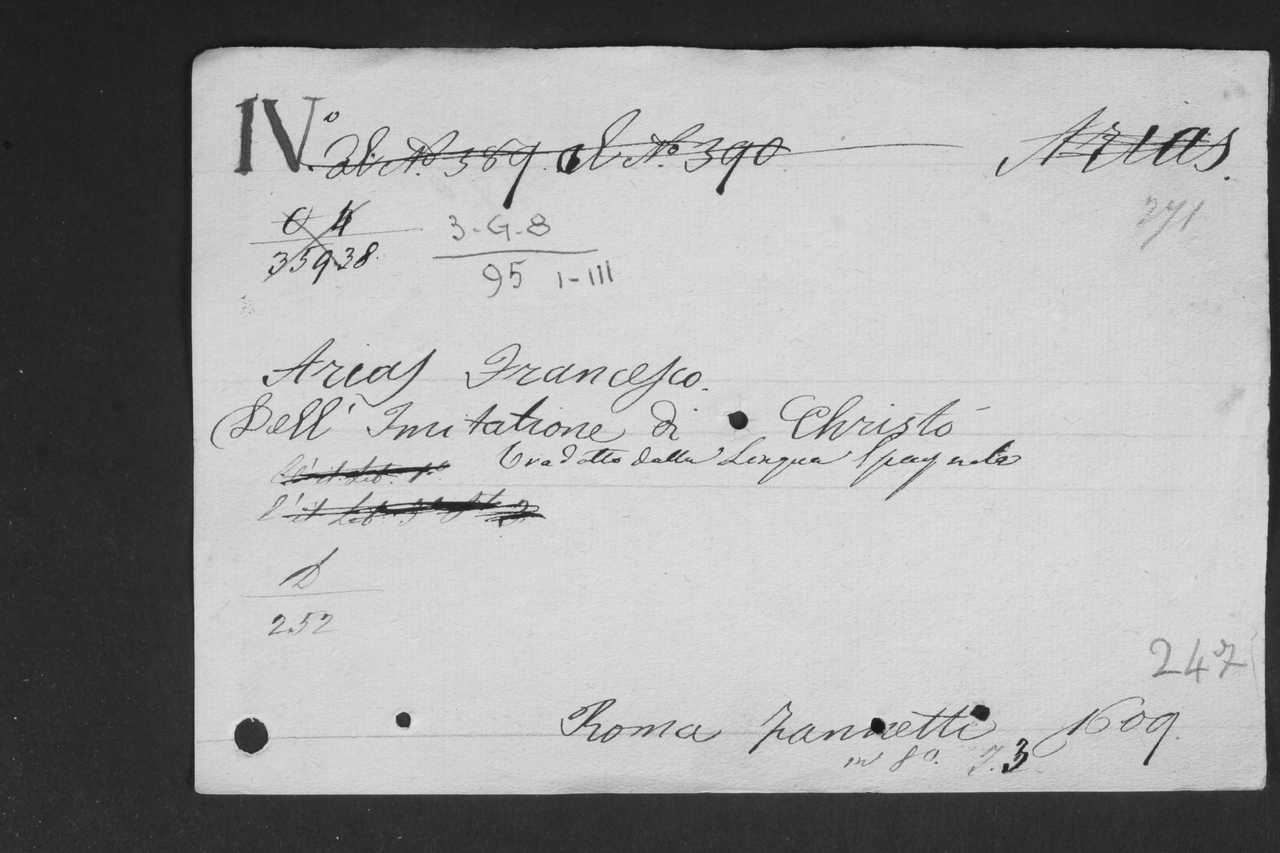 IV.o
ab No. 389. ab No. 390 Arias.
271
O 4
359.38.
3-G-8
95 I-III
Arias Francesco.
Dell' Imitatione di Christo
Tradotto dalla Lingua Spagnola
D
252
247
Roma Zannetti 1609.
in 8o. T. 3